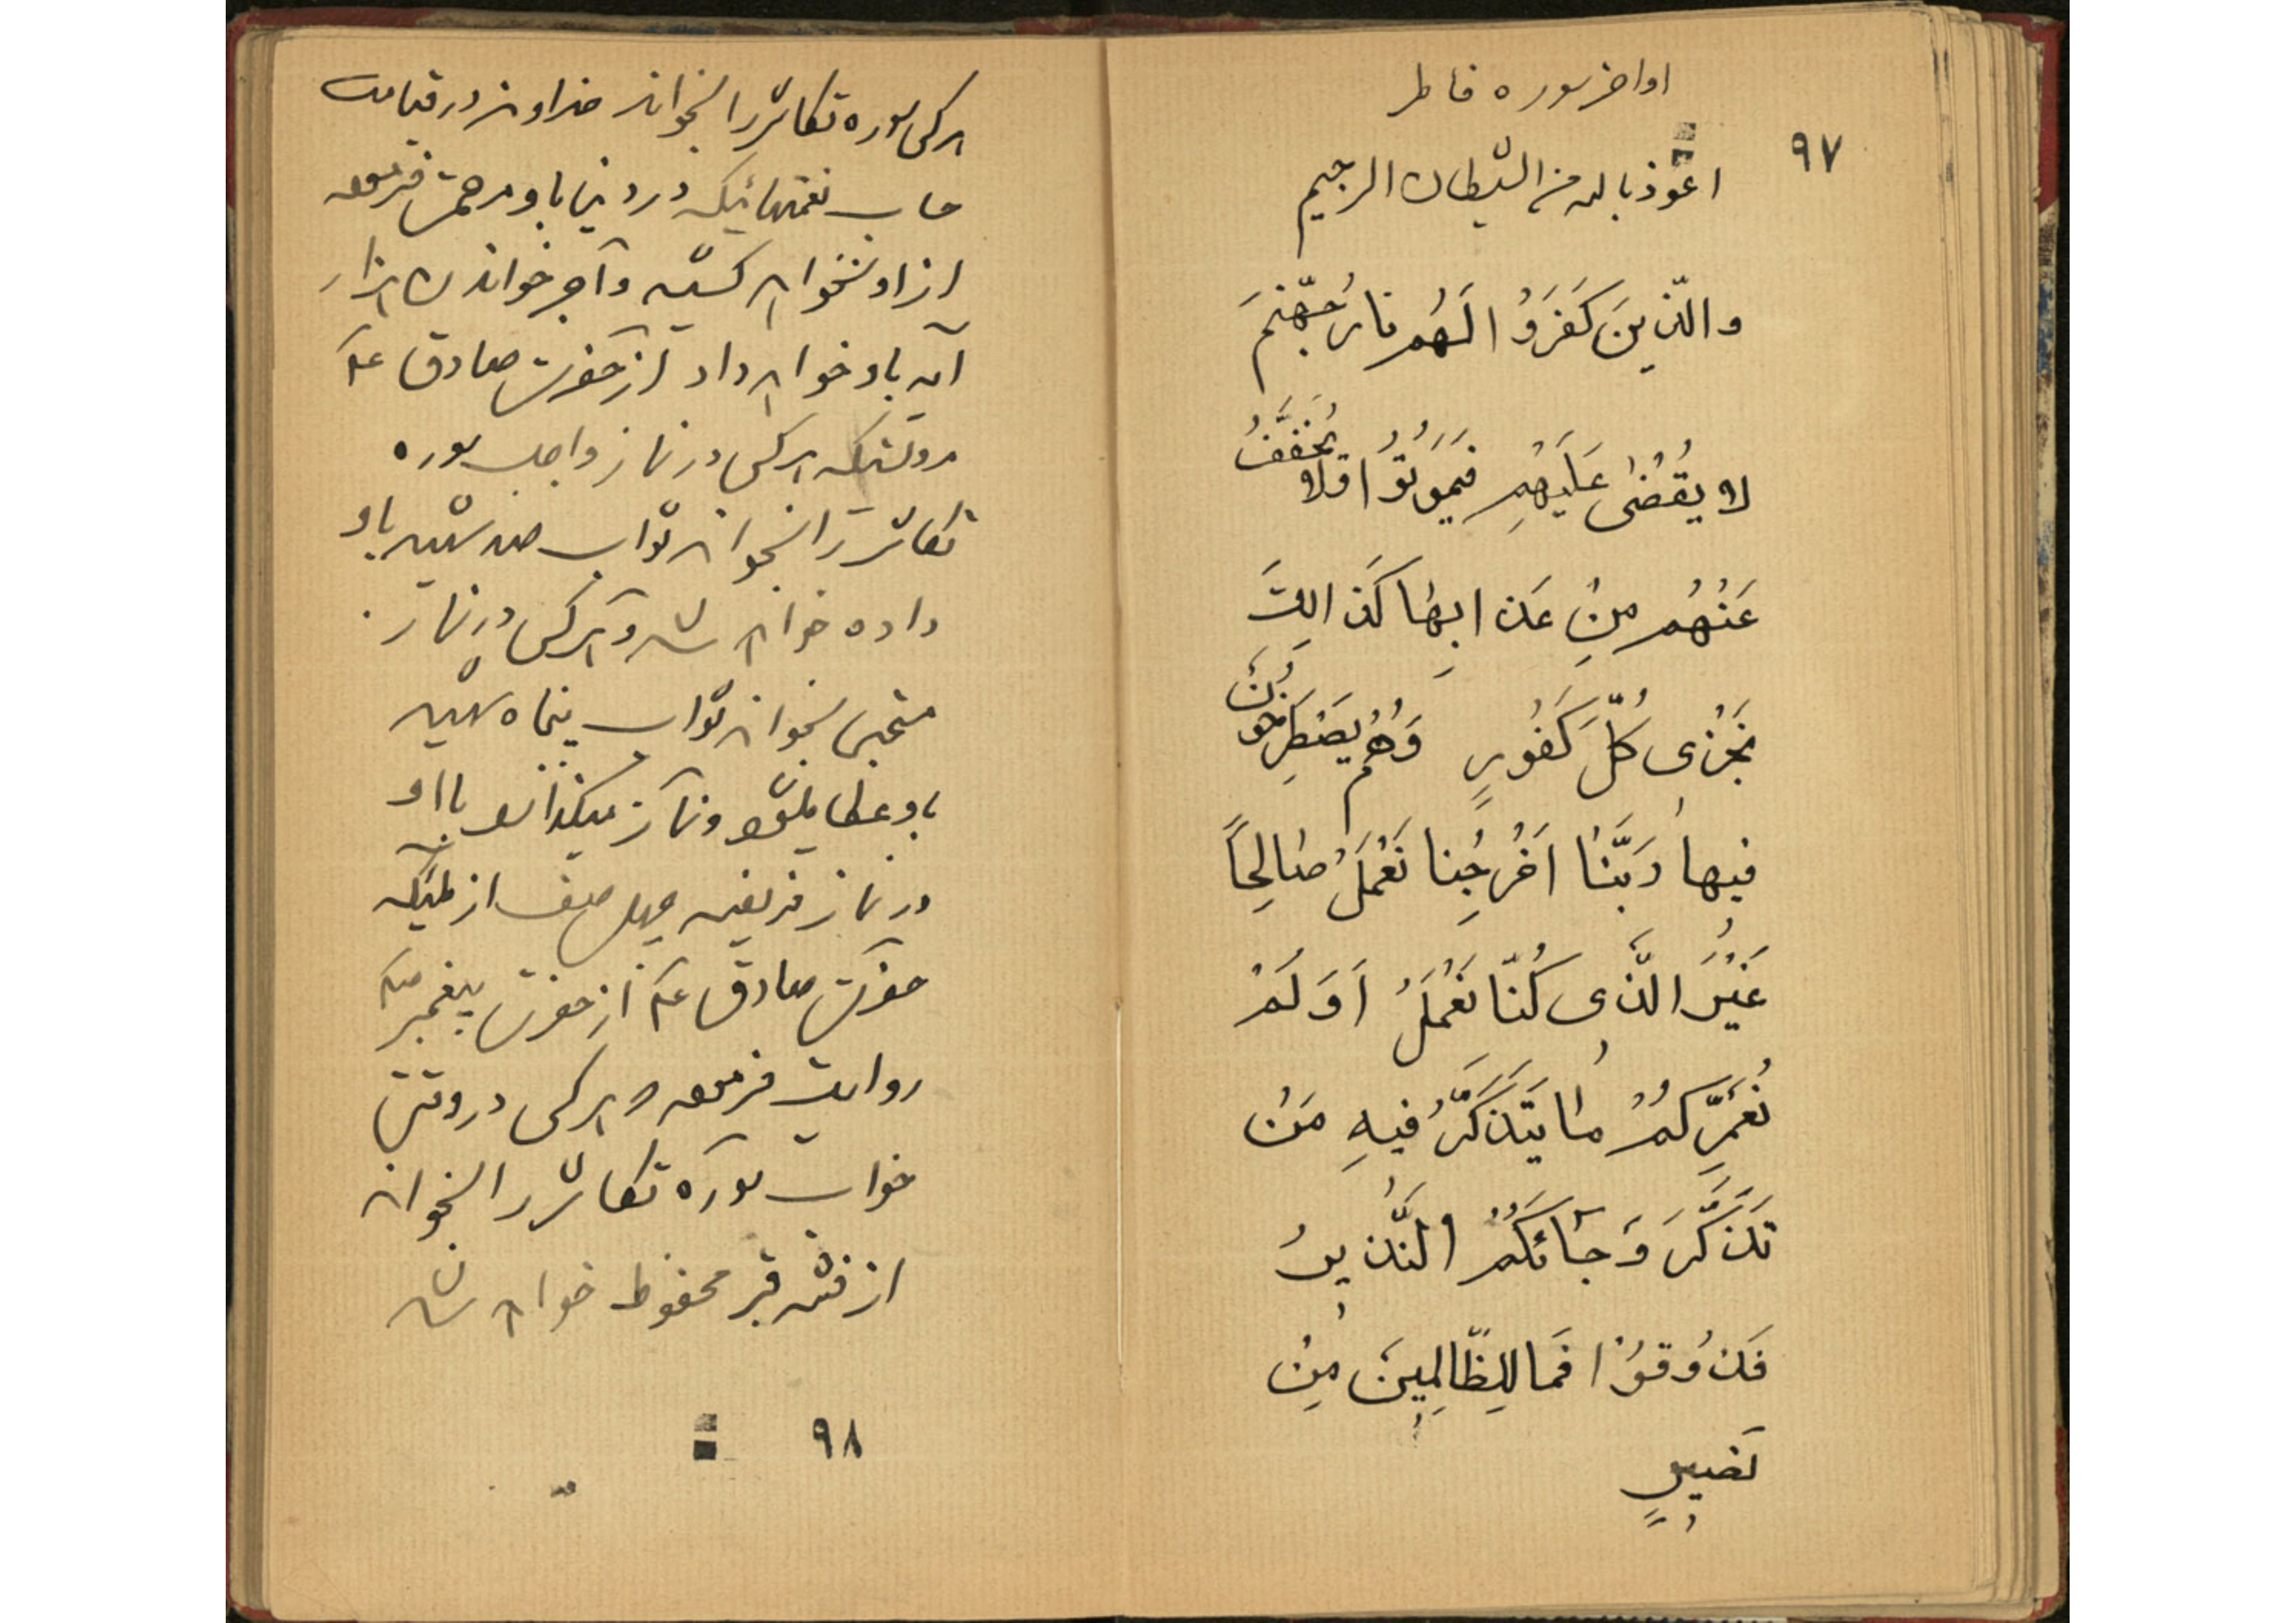 اواخر سوره فاطر
۹۷
اعوذ بالله من الشیطان الرجیم
والّذینَ کَفَرَوُا لَهُم نارُ جَهّنمَ
لا یقُضٰی عَلَیهِم فَیَموُتوُا وَلا یُخَفَّفُ
عَنْهُم مِنْ عَذابِها کَذالِکَ
نَجْزی کُلَّ کَفُورٍ وَهُم یَصْطَرِخُونَ
فیها رَبَّنٰا اَخْرِجْنا نَعْمَلُ صٰالِحاً
غَیْرَ الَّذی کُنّا نَعْمَلُ اَوَلَمْ
نُعَمِّرکُمْ مٰا یَتَذَکَّرُ فیهِ مَنْ
تَذَکَّرَ وَ جٰائَکُمُ النَّذیرُ
فَذُوقوُا فَما لِلِظّالِمینَ مِنْ
نَصیرٍ
هر کس سوره تکاثر را بخواند خداوند در قیامت
حساب نعمتهائیکه در دنیا باو مرحمت فرموده
از او نخواهد کشید و آجر خواندن هزار
آیه باو خواهد داد از حضرت صادق ع
مرویستکه هر کس در نماز واجب سوره
تکاثر را بخواند ثواب صد شهید باو
داده خواهد شد و هر کس در نماز
مستحبی بخواند ثواب پنجاه شهید
باو عطا میشود و نماز میگذارند با او
در نماز فریضه چهل صف از ملئکه
حضرت صادق ع از حضرت پیغمبر ص
روایت فرموده هر کس در وقت
خواب سوره تکاثر را بخواند
از فتنه قبر محفوظ خواهد شد
۹۸